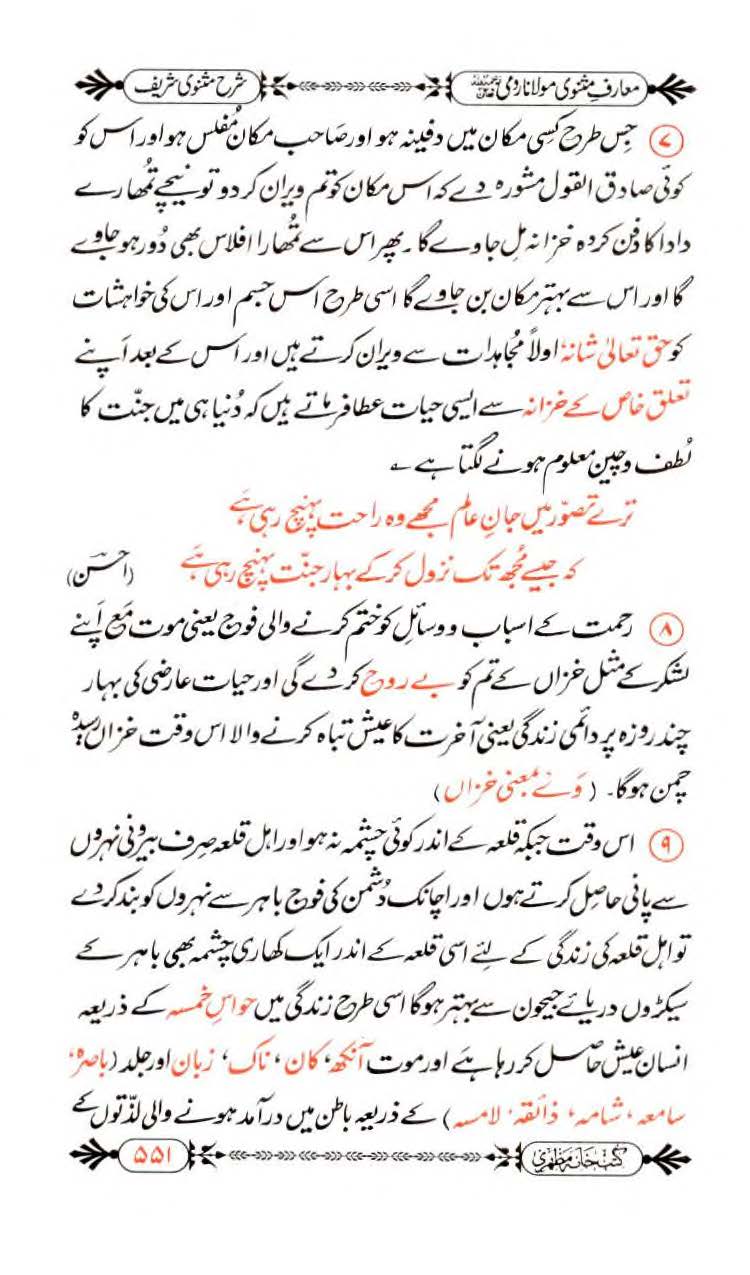 معارفِ مثنوی مولانا رومی رحمۃ اللہ علیہ
شرح مثنوی شریف
۷ جِس طرح کسِی مکان میں دفینہ ہو اور صَاحب مکان مُفلس ہو اور اس کو
کوئی صادق القول مشورہ دے کہ اس مکان کو تم ویران کر دو تو نیچے تمُھارے
دادا کا دفن کردہ خزانہ مِل جاوے گا ۔ پھر اس سے تمُھارا افلاس بھی دُور ہو جاوے
گا اور اس سے بہتر مکان بن جاوے گا اسی طرح اس جسم اور اس کی خواہشات
کو حق تعالیٰ شانہٗ اولاً مُجاہدات سے ویران کرتے ہیں اور اس کے بعد اَپنے
تعلق خاص کے خزانہ سے ایسی حیات عطا فرماتے ہیں کہ دُنیا ہی میں جنّت کا
لُطف و چین معلوم ہونے لگتا ہے ؎
ترے تصوّر میں جانِ عالم مجھے وہ راحت پہنچ رہی ہَے
کہ جیسے مُجھ تک نزول کر کے بہار جنّت پہنچ رہی ہَے (احسنؔ)
۸ رحمت کے اسباب و وسائل کو ختم کرنے والی فوج یعنی موت مَع اَپنے
لشکر کے مثل خزاں کے تم کو بے روح کر دے گی اور حیات عارضی کی بہار
چند روزہ پر دائمی زندگی یعنی آخرت کا عیش تباہ کرنے والا اس وقت خزاں رسیدہ
چمن ہوگا۔ (وَے بمعنی خزاں)
۹ اس وقت جبکہ قلعہ کے اندر کوئی چشمہ نہ ہو اور اہل قلعہ صِرف بیرونی نہروں
سے پانی حاصِل کرتے ہوں اور اچانک دُشمن کی فوج باہر سے نہروں کو بند کر دے
تو اہل قلعہ کی زندگی کے لئے اسی قلعہ کے اندر ایک کھاری چشمہ بھی باہر کے
سیکڑوں دریائے جیحون سے بہتر ہوگا اسی طرح زندگی میں حواسِ خمسہ کے ذریعہ
انسان عیش حاصل کر رہا ہَے اور موت آنکھ، کان، ناک، زبان اور جلد (باصرہ،
سامعہ، شامہ، ذائقہ، لامسہ) کے ذریعہ باطن میں درآمد ہونے والی لذّتوں کے
کتب خانہ مظہری
۵۵۱